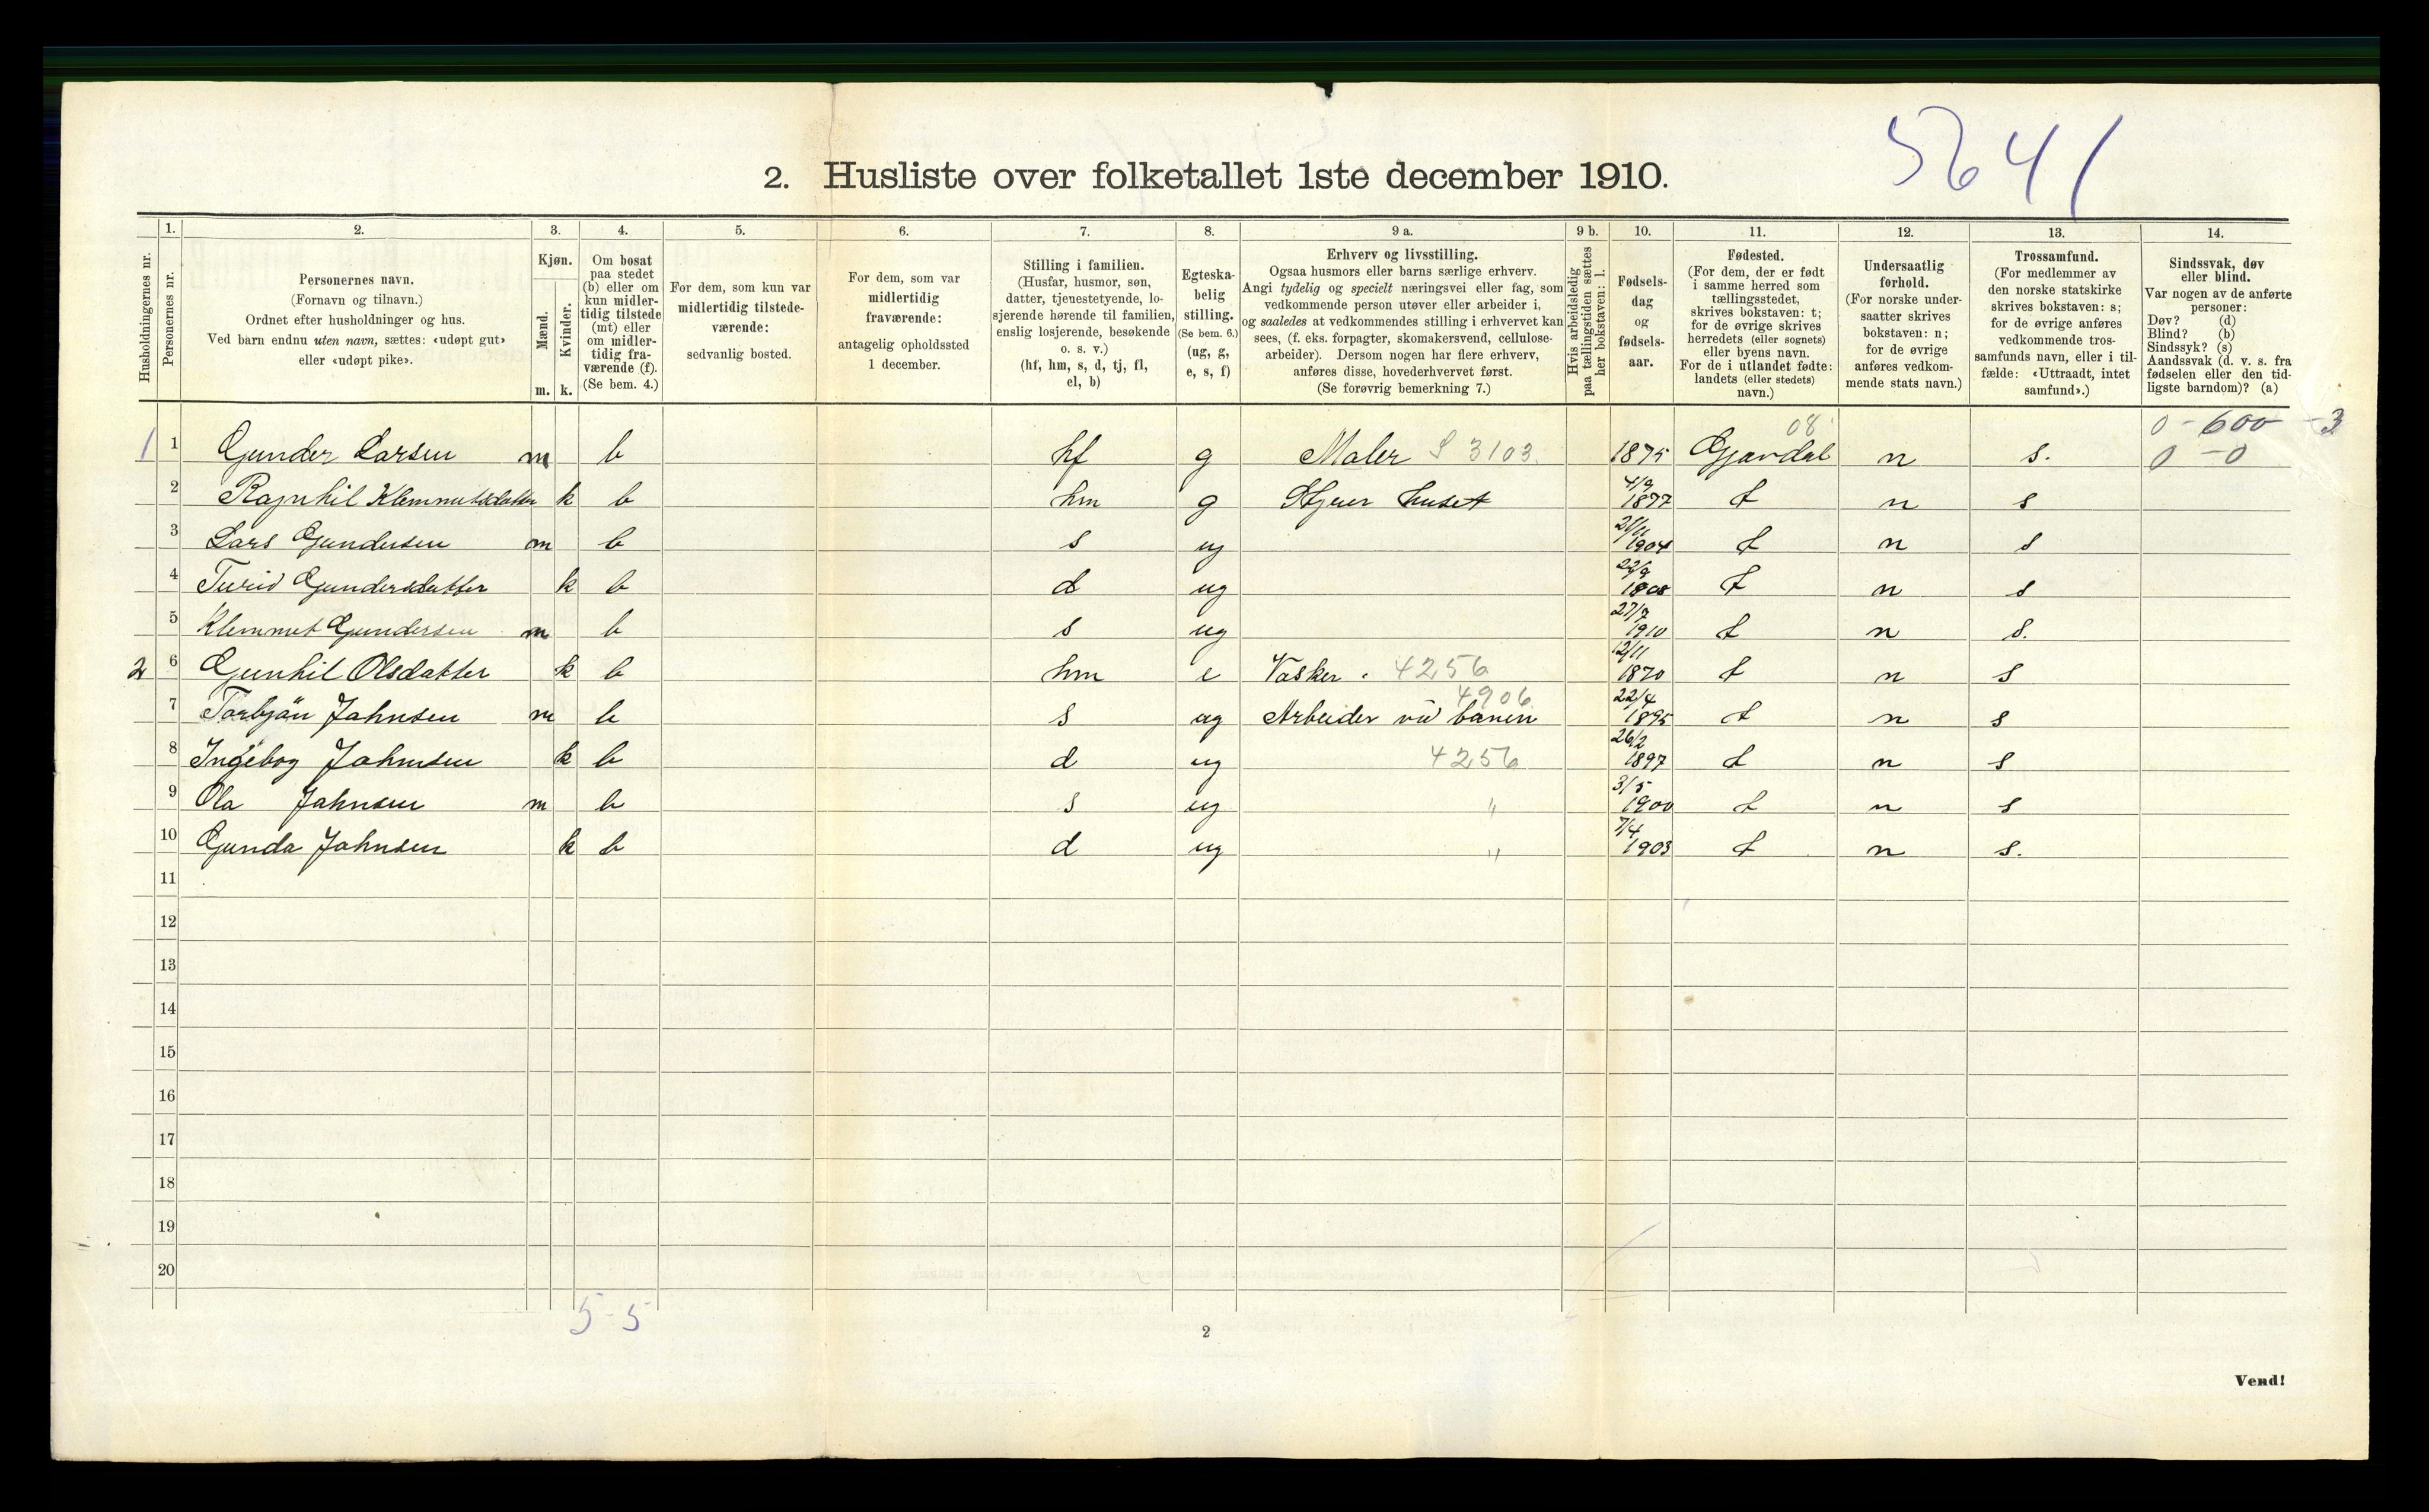 5641
2. Husliste over folketallet 1ste december 1910.
Husholdningernes nr.
1.
Personernes nr.
2.
Personernes navn.
(Fornavn og tilnavn.)
Ordnet efter husholdninger og hus.
Ved barn endnu uten navn, sættes: «udøpt gut»
eller «udøpt pike».
3.
Kjøn.
Mænd.
Kvinder.
m. k.
4.
Om bosat
paa stedet
(b) eller om
kun midler-
tidig tilstede
(mt) eller
om midler-
tidig fra-
værende (f).
(Se bem. 4.)
5.
For dem, som kun var
midlertidig tilstede-
værende:
sedvanlig bosted.
6.
For dem, som var
midlertidig
fraværende:
antagelig opholdssted
1 december.
7.
Stilling i familien.
(Husfar, husmor, søn,
datter, tjenestetyende, lo-
sjerende hørende til familien,
enslig losjerende, besøkende
o. s. v.)
(hf, hm, s, d, tj, fl,
el, b)
8.
Egteska-
belig
stilling.
(Se bem. 6.)
(ug, g,
e, s, f)
9 a.
Erhverv og livsstilling.
Ogsaa husmors eller barns særlige erhverv.
Angi tydelig og specielt næringsvei eller fag, som
vedkommende person utøver eller arbeider i,
og saaledes at vedkommendes stilling i erhvervet kan
sees, (f. eks. forpagter, skomakersvend, cellulose-
arbeider). Dersom nogen har flere erhverv,
anføres disse, hovederhvervet først.
(Se forøvrig bemerkning 7.)
9 b.
Hvis arbeidsledig
paa tællingstiden sættes
her bokstaven: l.
10.
Fødsels-
dag
og
fødsels-
aar.
11.
Fødested.
(For dem, der er født
i samme herred som
tællingsstedet,
skrives bokstaven: t;
for de øvrige skrives
herredets (eller sognets)
eller byens navn.
For de i utlandet fødte:
landets (eller stedets)
navn.)
12.
Undersaatlig
forhold.
(For norske under-
saatter skrives
bokstaven: n;
for de øvrige
anføres vedkom-
mende stats navn.)
13.
Trossamfund.
(For medlemmer av
den norske statskirke
skrives bokstaven: s;
for de øvrige anføres
vedkommende tros-
samfunds navn, eller i til-
fælde: «Uttraadt, intet
samfund».)
14.
Sindssvak, døv
eller blind.
Var nogen av de anførte
personer:
Døv? (d)
Blind? (b)
Sindssyk? (s)
Aandssvak (d. v. s. fra
fødselen eller den tid-
ligste barndom)? (a)
08 0 - 600 - 3
1 1 Gunder Larsen m b hf g Maler S 3103. 1875 Gjøvdal n s. 0 - 0
2 Ragnhil Klemmetsdatter k b hm g Stjner huset 4/9 1877 t n s
3 Lars Gundersen m b s ug 1904 t n s
4 Turid Gundersdatter k b d ug 22/9 1908 t n s
5 Klemmet Gundersen m b s ug 27/7 1910 t n s.
2 6 Gunhil Olsdatter k b hm e Vasker . 4256 12/11 1870 t n s
7 Torbjön Jahnsen m b s ug Arbeider vid banen 4906 22/4 1895 t n s
8 Ingebog Jahnsen k b d ug 4256 26/2 1897 t n s
9 Ola Jahnsen m b s ug " 3/5 1900 t n s
10 Gunda Jahnsen k b d ug " 7/4 1903 t n s.
11
12
13
14
15
16
17
18
19
20
5-5
2
Vend!